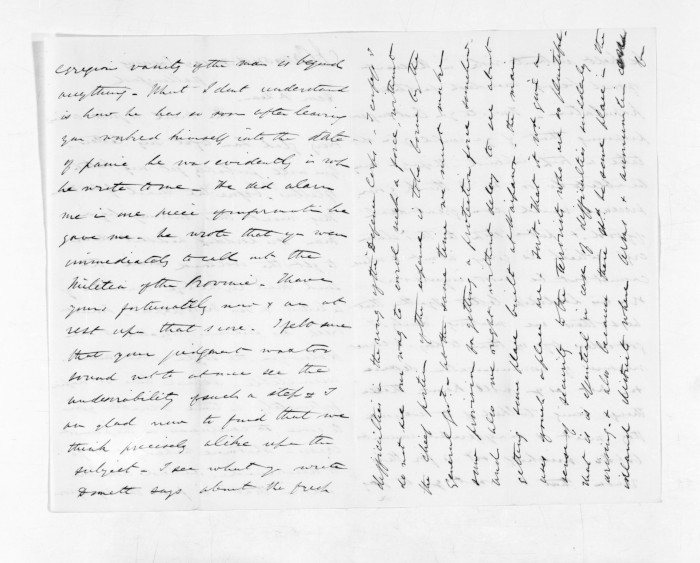 vanity of the man is beyond
anything - What I dont understand
is how he has so soon after leaving
you worked himself into the state
of panic he was evidently in when
he wrote to me - He did alarm
me in one piece of information he
gave me - he wrote that you were
immediately to call out the
Militia of the Province - I have
yours fortunately now & am at
rest upon that score. I felt sure
that your judgment was too
sound not to at once see the
undesirability of such a step & I
am glad now to find that we
think precisely alike upon the
subject - I see what you write
Domett says about the fresh
difficulties in the way of the Defence Corps -
do not see our way to enrol such a force without
the cheap portion of the expense is to be borne by the
General Govt - at the same time we must make
some provision for getting a protective force somehow
and also we ought without delay to see about
getting some place built at the
was good a place as - but that is not give a
sense of security to the who are so
that it is essential in case of difficulties suddenly
arising - & also because there shd be some place in the
inland districts where Arms & ammunition can
be